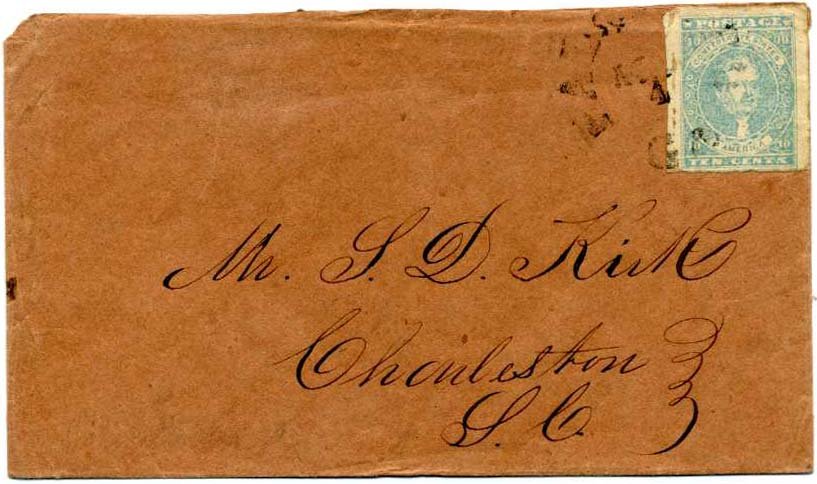 POSTAGE
10 10
CONFEDERATE STATES
OF AMERICA
10 10
TEN CENTS
Mr. S. D. Kirk
Charleston
S. C.